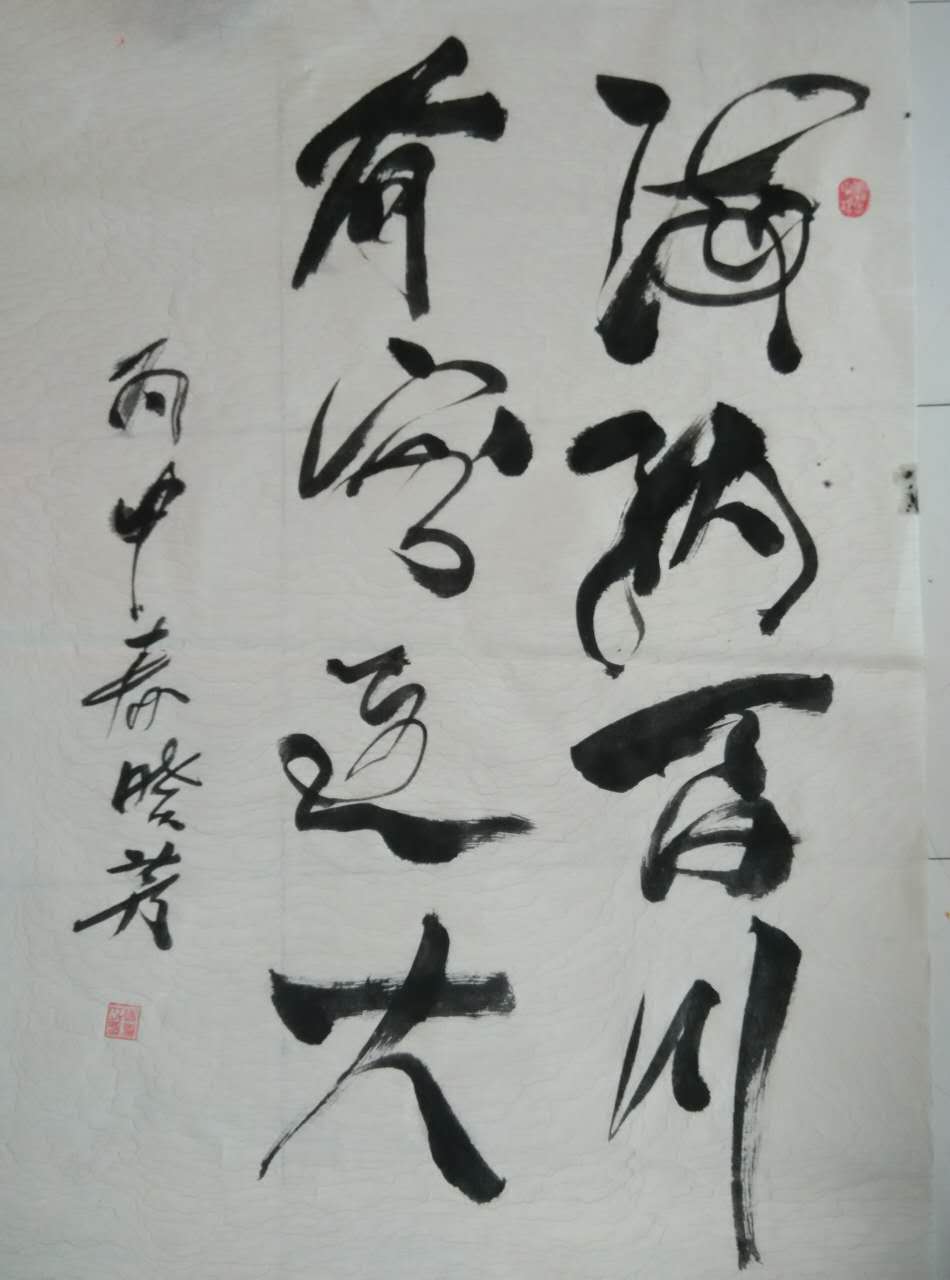 海纳百川
有容乃大
丙申春晓芳